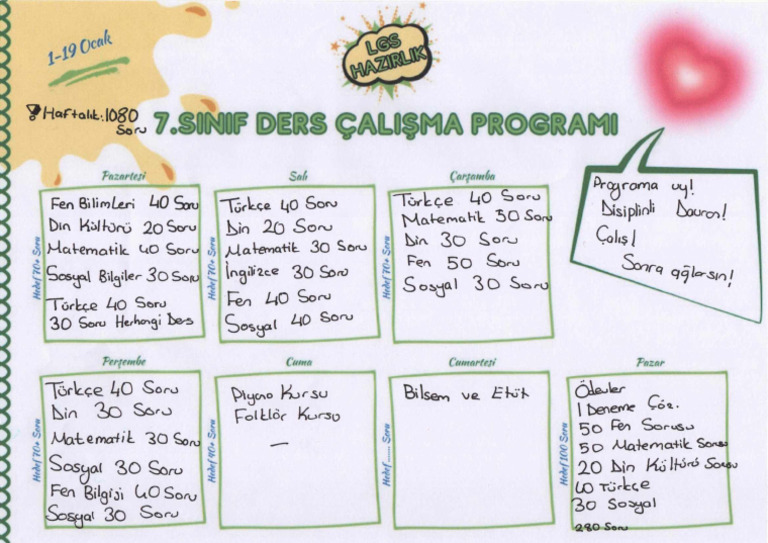 1-19 Ocak
LGS
HAZIRLIK
Haftalık: 1080
Soru
7.SINIF DERS ÇALIŞMA PROGRAMI
Pazartesi
Hedef 70+ Soru
Fen Bilimleri 40 Soru
Din Kültürü 20 Soru
Matematik 40 Soru
Sosyal Bilgiler 30 Soru
Türkçe 40 Soru
30 Soru Herhangi Ders
Salı
Hedef 70+ Soru
Türkçe 40 Soru
Din 20 Soru
Matematik 30 Soru
İngilizce 30 Soru
Fen 40 Soru
Sosyal 40 Soru
Çarşamba
Hedef 70+ Soru
Türkçe 40 Soru
Matematik 30 Soru
Din 30 Soru
Fen 50 Soru
Sosyal 30 Soru
Programa uy!
Disiplinli Davran!
Çalış!
Sonra ağlarsın!
Perşembe
Hedef 70+ Soru
Türkçe 40 Soru
Din 30 Soru
Matematik 30 Soru
Sosyal 30 Soru
Fen Bilgisi 40 Soru
Sosyal 30 Soru
Cuma
Hedef 40+ Soru
Piyano Kursu
Folklör Kursu
—
Cumartesi
Hedef ...... Soru
Bilsem ve Etüt
Pazar
Hedef 100 Soru
Ödevler
1 Deneme Çöz.
50 Fen Sorusu
50 Matematik Sorusu
20 Din Kültürü Sorusu
40 Türkçe
30 Sosyal
280 Soru